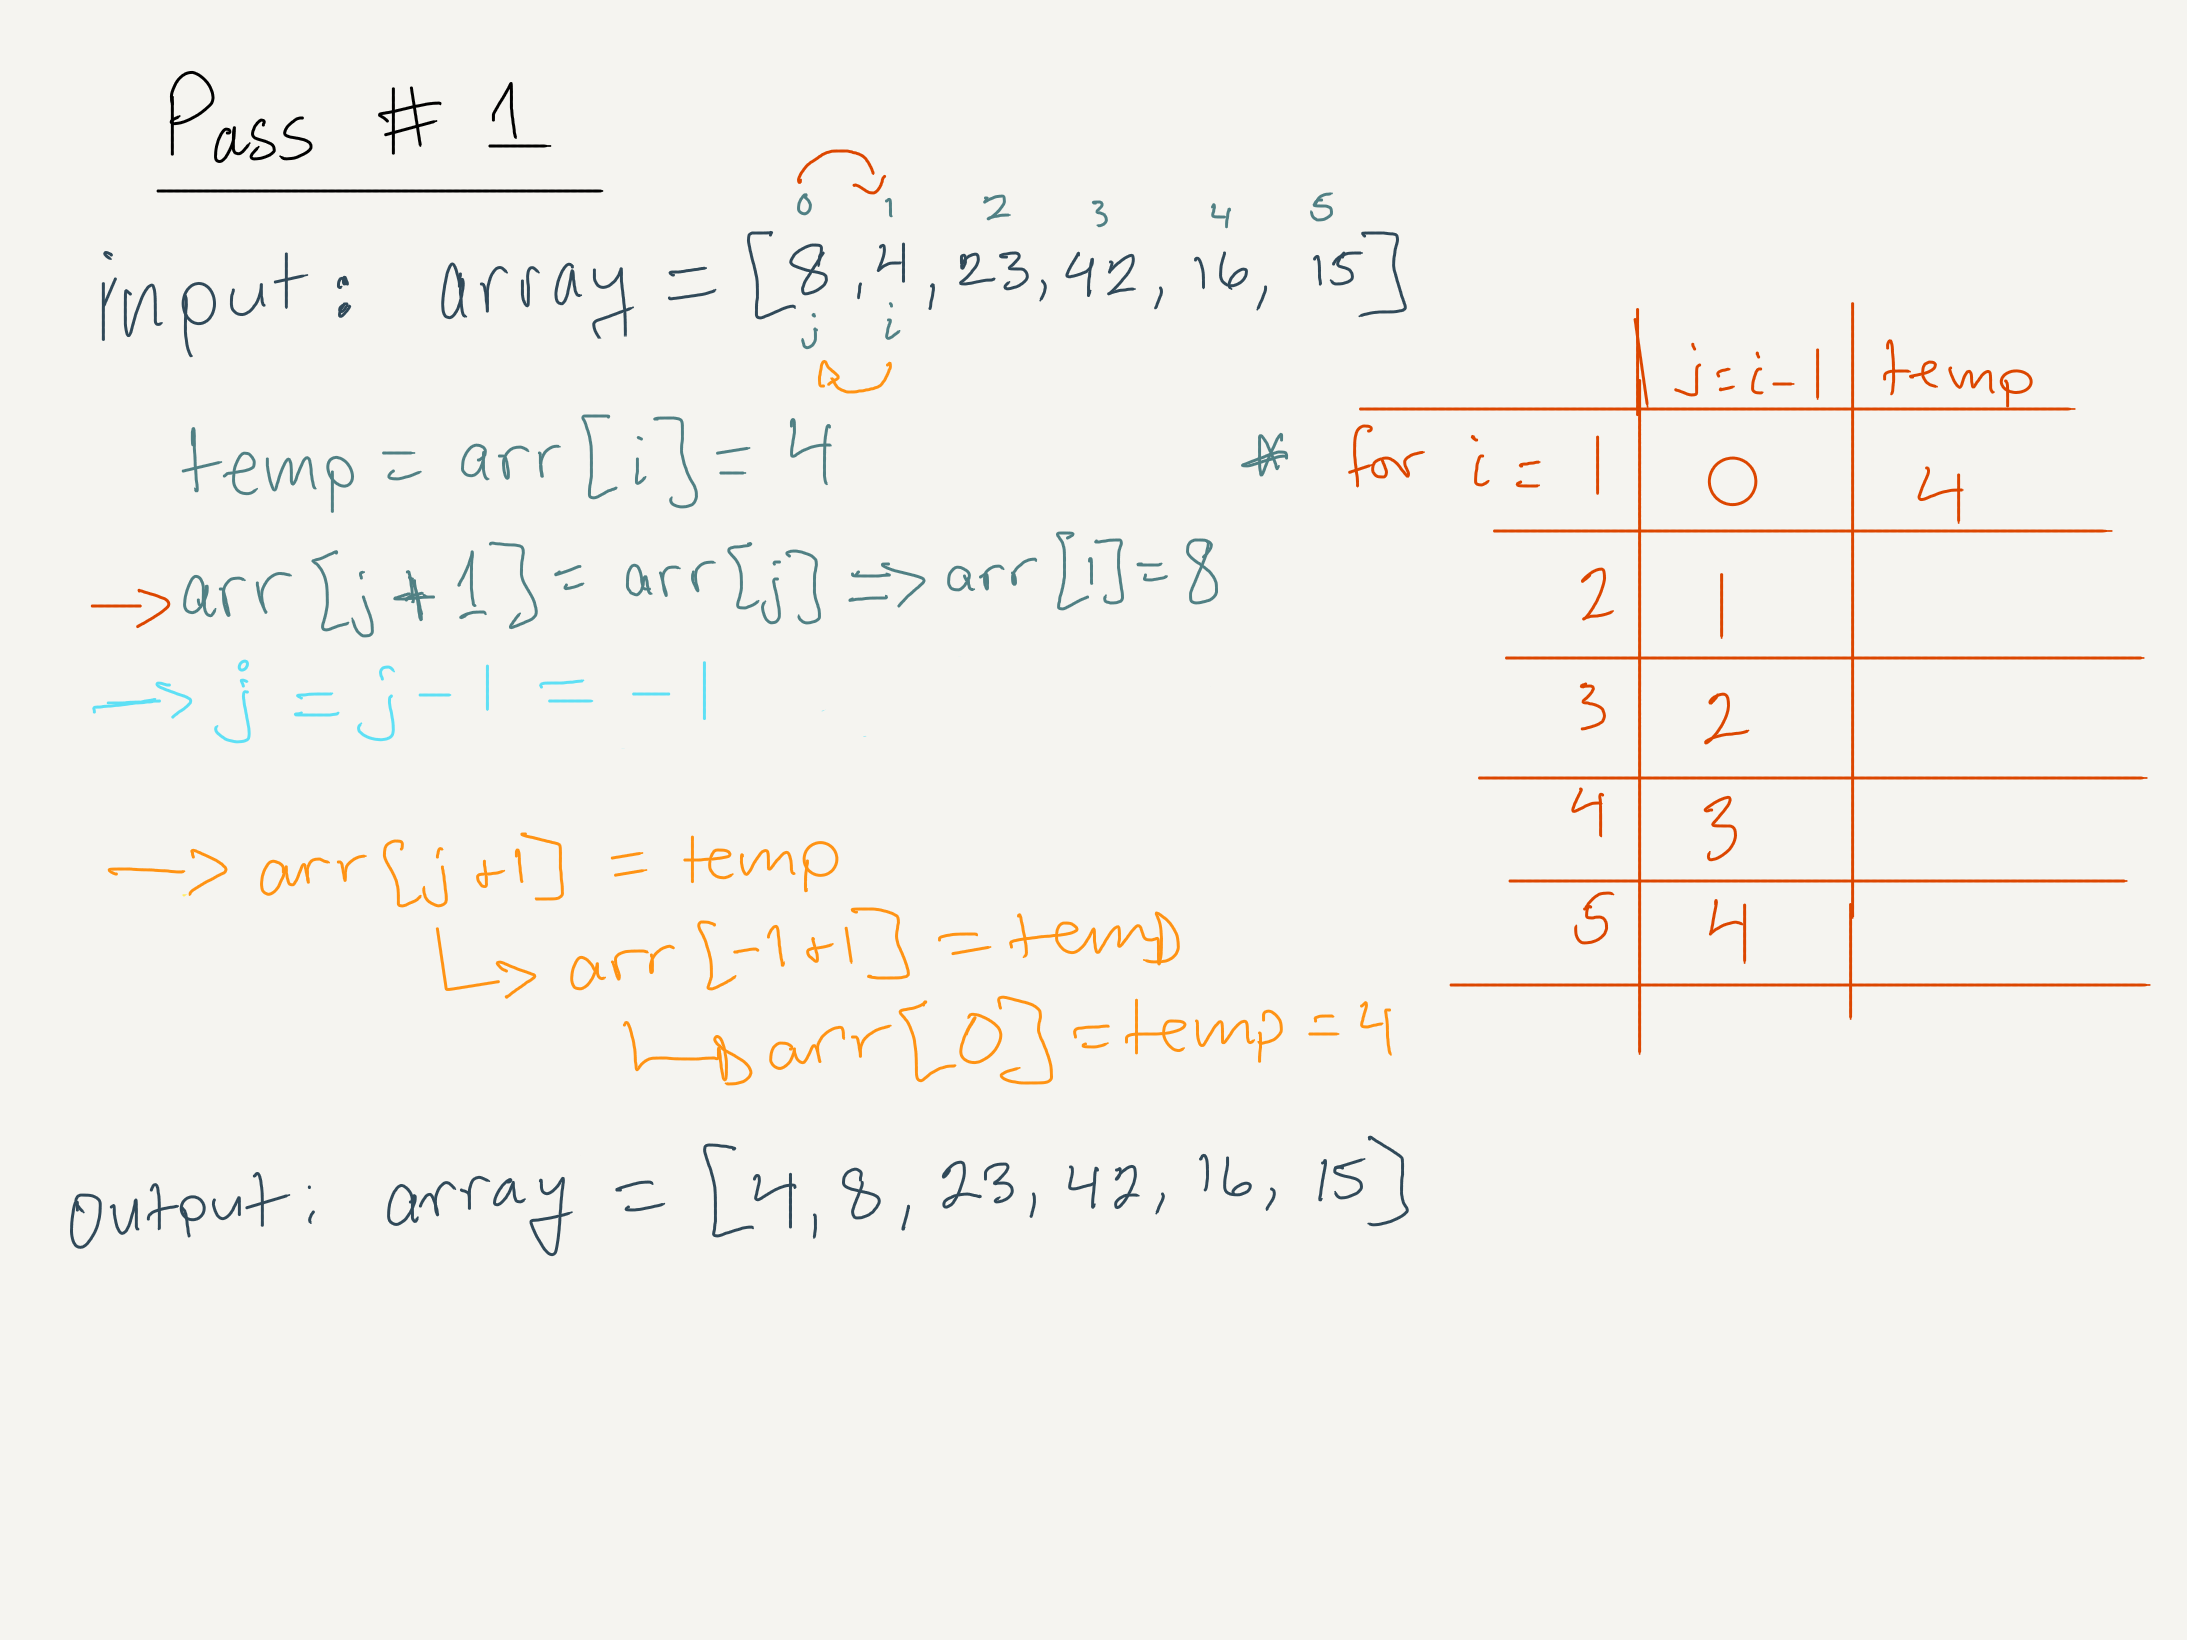 Pass # 1
0 1 2 3 4 5
input: array = [8, 4, 23, 42, 16, 15]
j i
temp = arr[i] = 4
→ arr[j+1] = arr[j] ⇒ arr[1] = 8
→ j = j-1 = -1
→ arr[j+1] = temp
↳ arr[-1+1] = temp
↳ arr[0] = temp = 4
output: array = [4, 8, 23, 42, 16, 15]
j=i-1 temp
* for i = 1 0 4
2 1
3 2
4 3
5 4